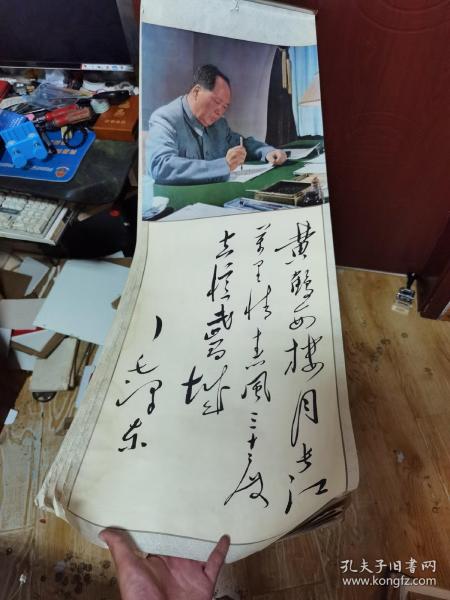 黄鶴西樓月长江
万里情春風三十度
空憶武昌城
毛泽东
孔夫子旧书网
www.kongfz.com